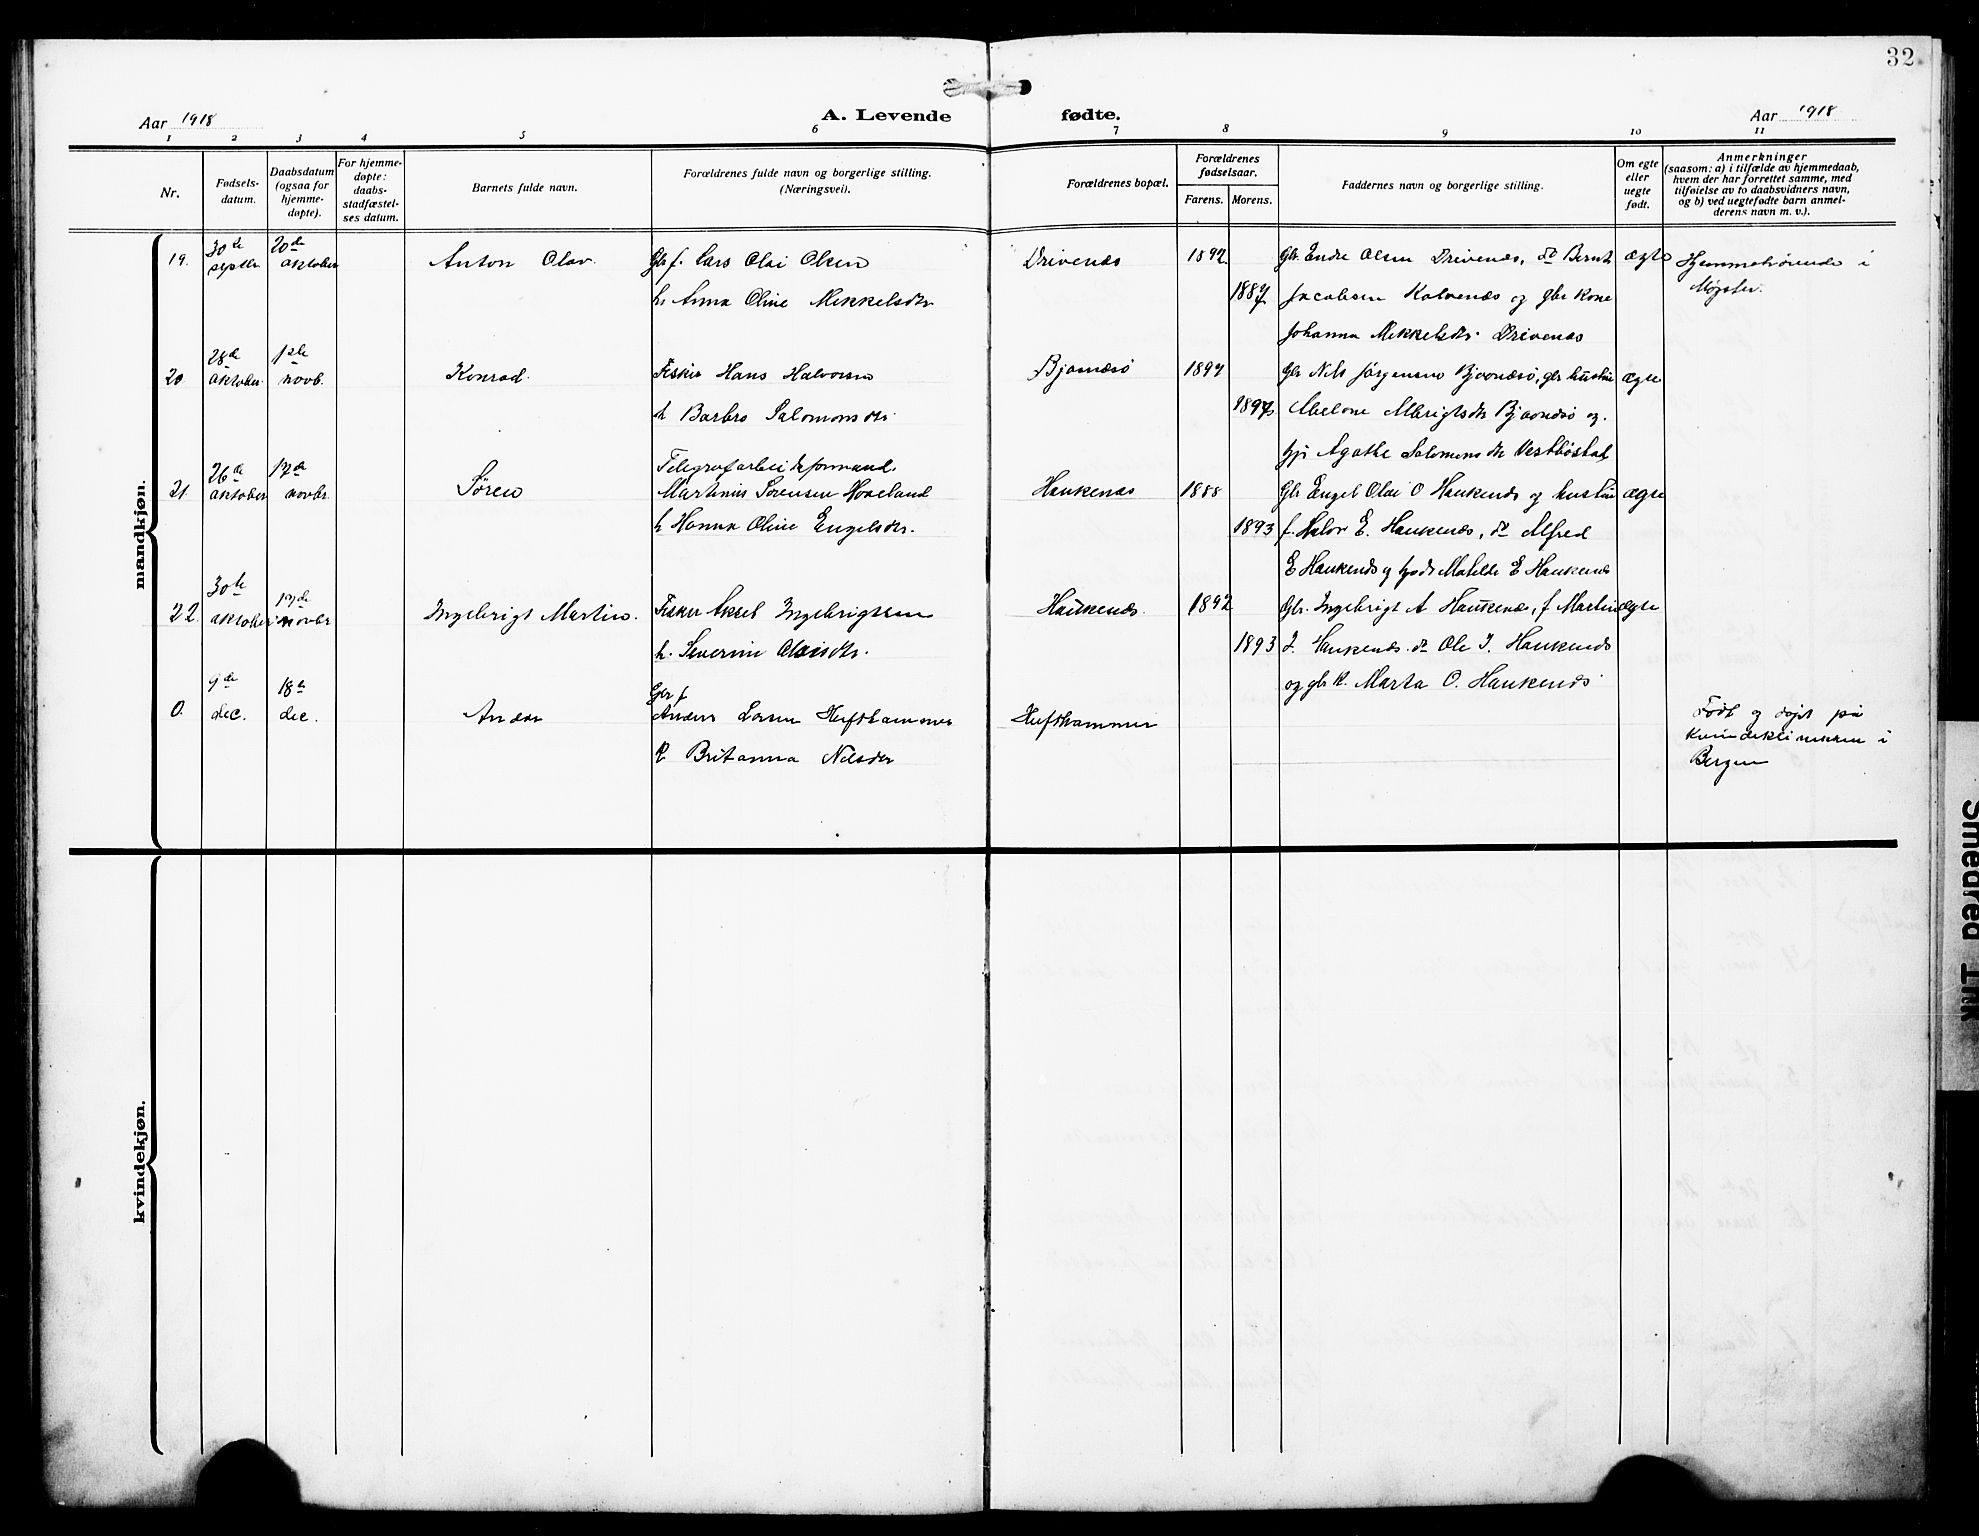 32
Aar 1918
A. Levende fødte.
Aar 1918
1 2 3 4 5 6 7 8 9 10 11
Nr.
Fødsels-
datum.
Daabsdatum
(ogsaa for
hjemme-
døpte).
For hjemme-
døpte:
daabs-
stadfæstel-
ses datum.
Barnets fulde navn.
Forældrenes fulde navn og borgerlige stilling.
(Næringsvei).
Forældrenes bopæl.
Forældrenes
fødselsaar.
Farens. Morens.
Faddernes navn og borgerlige stilling.
Om egte
eller
uegte
født.
Anmerkninger
(saasom: a) i tilfælde av hjemmedaab,
hvem der har forrettet samme, med
tilføielse av to daabsvidners navn,
og b) ved uegtefødte barn anmel-
derens navn m. v.).
mandkjøn.
19. 30te septbr. 20de oktober Anton Olav.
Gbr f. Lars Olai Olsen
h. Anna Oline Mikkelsdtr
Drivenæs 1892 1887
Gbr. Endre Olsen Drivenæs, do Bernt
Jacobsen Kalvenæs og gbr kone
Johanna Mikkelsdtr. Drivenæs
ægte
Hjemmehørende i
Møgster.
20. 28de oktober. 1ste novb. Konrad.
Fisker Hans Halvorsen
h Barbro Salomonsdtr.
Bjornæsø 1897 1897
Gbr Nils Jørgensen Bjornæsø, gbr hustru
Abelone Albrigtsdtr Bjornæsø og.
Agathe Salomonsdtr Vestbøstad
ægte
21. 26de oktober 17de novbr. Søren
Telegrafarbeidsformand.
Martinus Sørensen Hoveland
h Hanna Oline Engelsdtr.
Haukenæs 1888 1893
Gbr Engel Olai O Haukenæs og hustru
f. Halvor E. Haukenæs, do Alfred
E Haukenæs og Matilde E Haukenæs
ægte
22. 30te oktober 17de novbr Ingebrigt Martin.
Fisker Aksel Ingebrigtsen
h. Severine Olaisdtr.
Haukenæs. 1892 1893
Gbr. Ingebrigt A Haukenæs, f Martin
I. Haukenæs. do Ole I. Haukenæs
og gbr k. Marta O. Haukenæs.
ægte
0. 9de dec. 18de dec. Anders
Gbr f
Anders Larsen Hufthammer
k Britanna Nilsdtr
Hufthammer
Født og døpt på
kvindeklinikken i
Bergen
kvindekjøn.
Smeared Ink